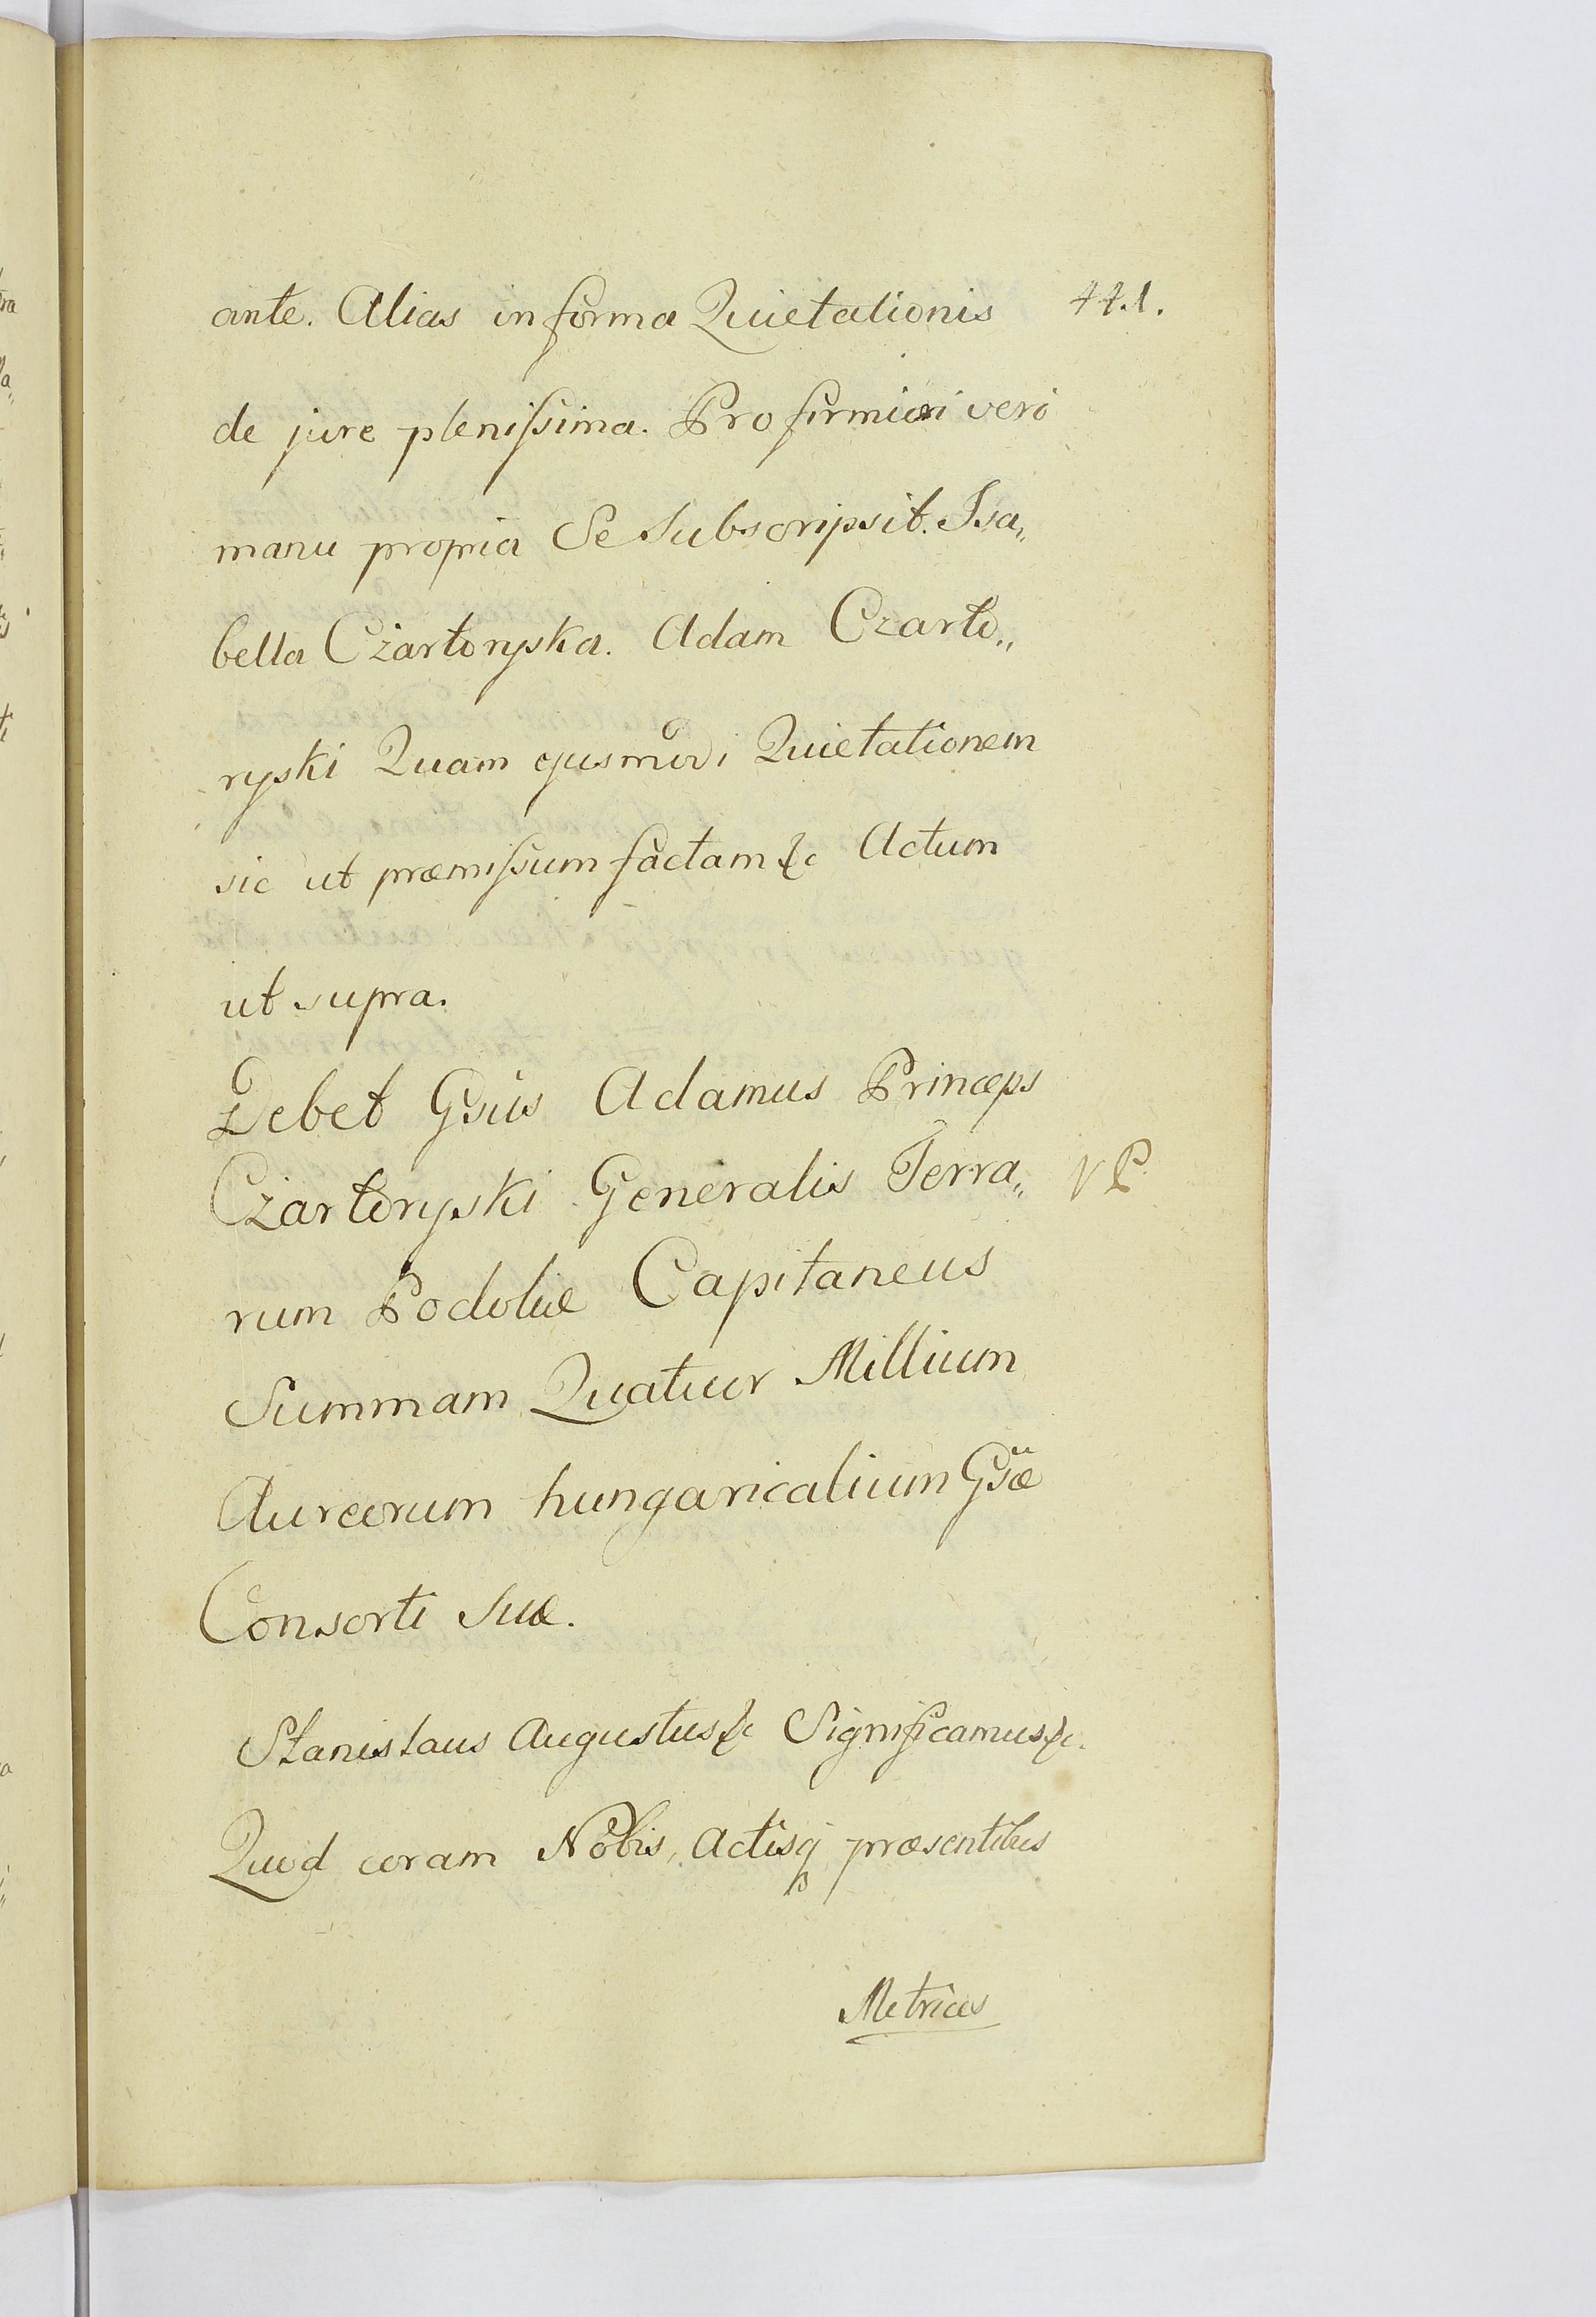 ante. Alias in forma Quietationis 441.
de jure plenissima. Pro firmiori vero
manu propria Se Subscripsit. Isa„
bella Czartoryska. Adam Czarto„
ryski Quam ejusmodi Quietationem
sic ut præmissum factam &c Actum
ut supra.
Debet Gsus Adamus Princeps
Czartoryski Generalis Terra„
rum Podoliæ Capitaneus
Summam Quatuor Millium
Aureorum hungaricalium Gsæ
Consorti Suæ.
Stanislaus Augustus &c Significamus &c.
Quod coram Nobis, Actisq præsentibus
Metrices